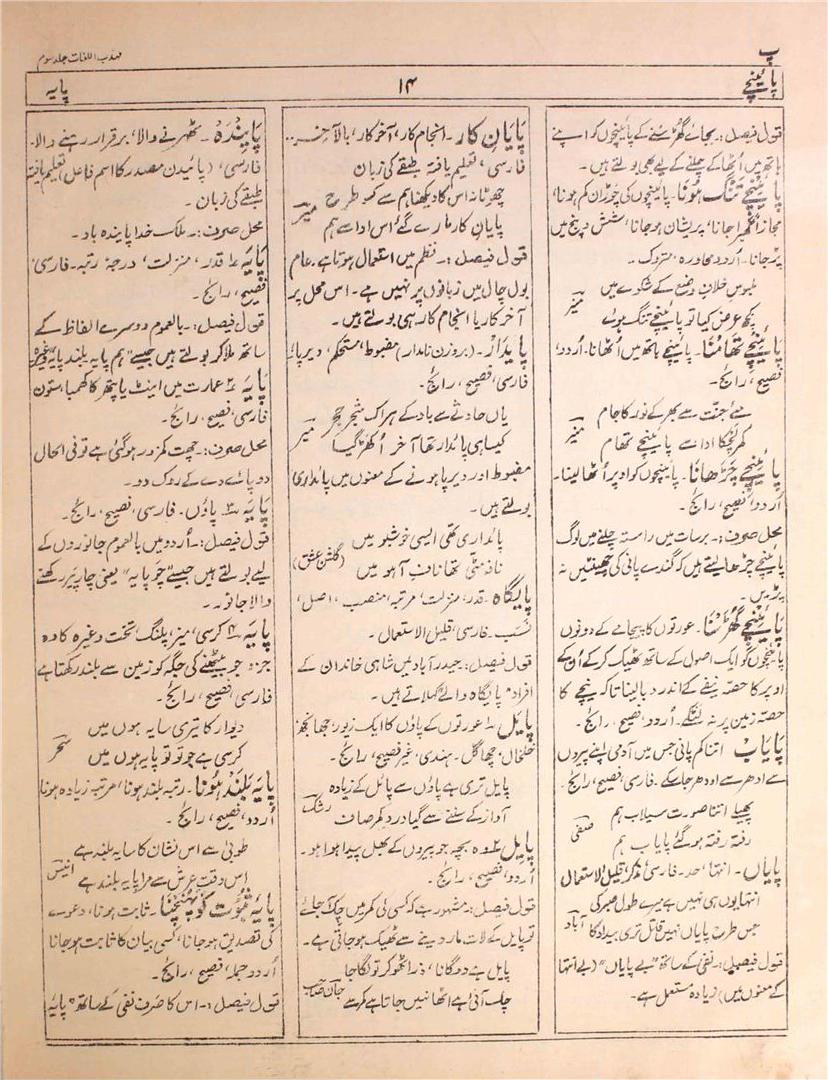 پ
مہذب اللغات جلد سوم
پائینچے
۱۴
پایہ
قول فیصل :۔ بجائے گھڑسنے کے پائینچوں کو اپنے
ہاتھ میں اُٹھا کے چلنے کے لیے بھی بولتے ہیں۔
پائینچے تنگ ہونا۔ پائینچوں کی چوڑان کم ہونا،
مجازاً گھبرا جانا، پریشان ہو جانا، شش و پنج میں
پڑ جانا۔ اُردو محاورہ، متروک۔
ملبوس خلافِ وضع کے شکوے میں
کچھ عرض کیا تو پائینچے تنگ ہوئے
منیر
پائینچے تھامنا۔ پائینچے ہاتھ میں اُٹھانا۔ اُردو،
فصیح، رائج۔
مئے جنت سے بھر کے نور کا جام
گھر لچکا ادا سے پائینچے تھام
منیر
پائینچے چڑھانا۔ پائینچوں کو اوپر اُٹھا لینا۔
اُردو، فصیح، رائج۔
محل صرف :۔ برسات میں راستہ چلنے میں لوگ
پائینچے چڑھا لیتے ہیں کہ گندے پانی کی چھینٹیں نہ
پڑیں۔
پائینچے گھڑسنا۔ عورتوں کا پیجامے کے دونوں
پائینچوں کو ایک اصول کے ساتھ ٹھیک کر کے اُن کے
اوپر کا حصہ نیفے کے اندر دبا لینا تاکہ نیچے کا
حصہ زمین پر نہ لٹکے۔ اُردو، فصیح، رائج۔
پایاب۔ اتنا کم پانی جس میں آدمی اپنے پیروں
سے ادھر سے اودھر جا سکے۔ فارسی، فصیح، رائج۔
پھیلے اتنا صورت سیلاب ہم
رفتہ رفتہ ہو گئے پایاب ہم
صفی
پایاں۔ انتہا، حد۔ فارسی، مذکر، قلیل الاستعمال
انتہا یوں ہی نہیں ہے میرے طول صبر کی
جس طرح پایاں نہیں قاتل تری بیداد کا
آباد
قول فیصل :۔ نفی کے ساتھ "بے پایاں" (بے انتہا
کے معنوں میں) زیادہ مستعمل ہے۔
پایانِ کار۔ انجام کار، آخر کار، بالآخر۔۔
فارسی، تعلیم یافتہ طبقے کی زبان
چھڑتا نہ اس کا دیکھنا ہم سے کسو طرح
پایانِ کار مارے گئے اس ادا سے ہم
میر
قول فیصل :۔ نظم میں استعمال ہوتا ہے۔ عام
بول چال میں زبانوں پر نہیں ہے۔ اس محل پر
آخر کار یا انجام کار ہی بولتے ہیں۔
پایدار۔ (بروزن نامدار) مضبوط، مستحکم، دیرپا۔
فارسی، فصیح، رائج۔
یاں حادثے سے باد کے ہر اک شجر حجر
کیسا ہی پائدار تھا آخر اُکھڑ گیا
میر
مضبوط اور دیرپا ہونے کے معنوں میں پائداری
بولتے ہیں۔
پائداری تھی ایسی خوشبو میں
نافہ تھا نافِ آہو میں
(گلشن عشق)
پایگاہ۔ قدر، منزلت، مرتبہ، منصب، اصل،
نسب۔ فارسی، قلیل الاستعمال۔
قول فیصل :۔ حیدرآباد میں شاہی خاندان کے
افراد "پایگاہ والے" کہلاتے ہیں۔
پایل ۱؎ عورتوں کے پاؤں کا ایک زیور، جھانجھ
خلخال، چھاگل۔ ہندی، غیر فصیح، رائج۔
پایل تری ہے پاؤں سے پائل کے زیادہ
آواز کے سننے سے گیا درد کمر صاف
رشک
پایل ۲؎ وہ بچہ جو پیروں کے بھل پیدا ہوا ہو۔
اُردو، فصیح، رائج۔
قول فیصل :۔ مشہور ہے کہ کسی کی کمر میں چک آ جائے
تو پایل کے لات مار دینے سے ٹھیک ہو جاتی ہے۔
پایل ہے دوگانا، ذرا ٹھوکر تو لگا جا
چک آئی ہے اٹھا نہیں جاتا ہے کمر سے
جان صاحب
پایندہ۔ ٹھہرنے والا، برقرار رہنے والا۔
فارسی، (پائیدن مصدر کا اسم فاعل) تعلیم یافتہ
طبقے کی زبان۔
محل صرف :۔ ملک خدا پایندہ باد۔
پایہ ۱؎ قدر، منزلت، درجہ، رتبہ۔ فارسی،
فصیح، رائج۔
قول فیصل :۔ بالعموم دوسرے الفاظ کے
ساتھ ملا کر بولتے ہیں جیسے "ہم پایہ، بلند پایہ" وغیرہ
پایہ ۲؎ عمارت میں اینٹ یا پتھر کا کھمبا، ستون
فارسی، فصیح، رائج۔
محل صرف :۔ چھت کمزور ہو گئی ہے تو فی الحال
دو پائے دے کے روک دو۔
پایہ ۳؎ پاؤں۔ فارسی، فصیح، رائج۔
قول فیصل :۔ اُردو میں بالعموم جانوروں کے
لیے بولتے ہیں جیسے "چوپایہ" یعنی چار پیر رکھنے
والا جانور۔
پایہ ۴؎ کرسی، میز، پلنگ، تخت وغیرہ کا وہ
جزو جو بیٹھنے کی جگہ کو زمین سے بلند رکھتا ہے
فارسی، فصیح، رائج۔
دیوار کا تیری سایہ ہوں میں
کرسی ہے جو تو تو پایہ ہوں میں
سحر
پایہ بلند ہونا۔ رتبہ بلند ہونا، مرتبہ زیادہ ہونا
اُردو، فصیح، رائج۔
طوبیٰ سے اس نشان کا سایہ بلند ہے
اس وقت عرش سے مرا پایہ بلند ہے
انیس
پایۂ ثبوت کو پہنچنا۔ ثابت ہونا، دعوے
کی تصدیق ہو جانا، کسی بیان کا ثابت ہو جانا
اُردو جملہ، فصیح، رائج۔
قول فیصل :۔ اس کا صرف نفی کے ساتھ "پایہ